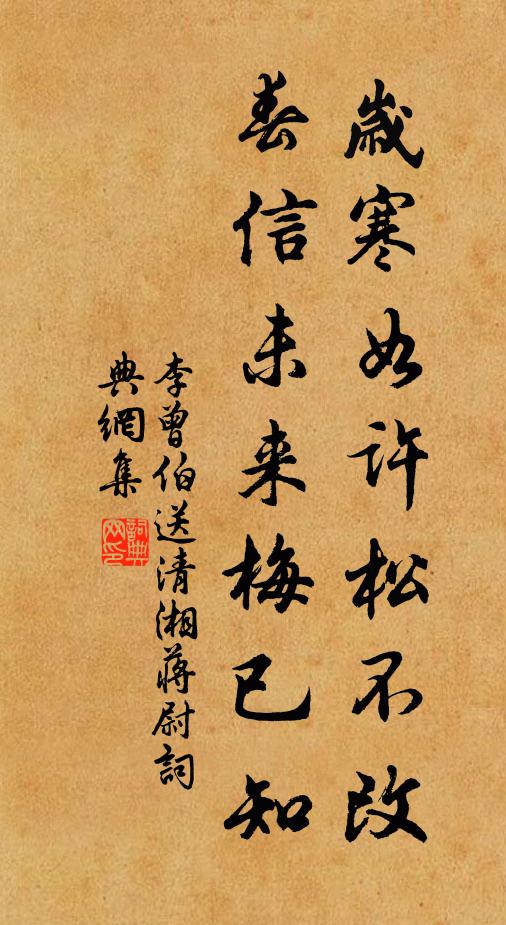 歲寒如許松不改
春信未來梅已知
李曾伯送清湘蔣尉詞
典網集
詞典网印